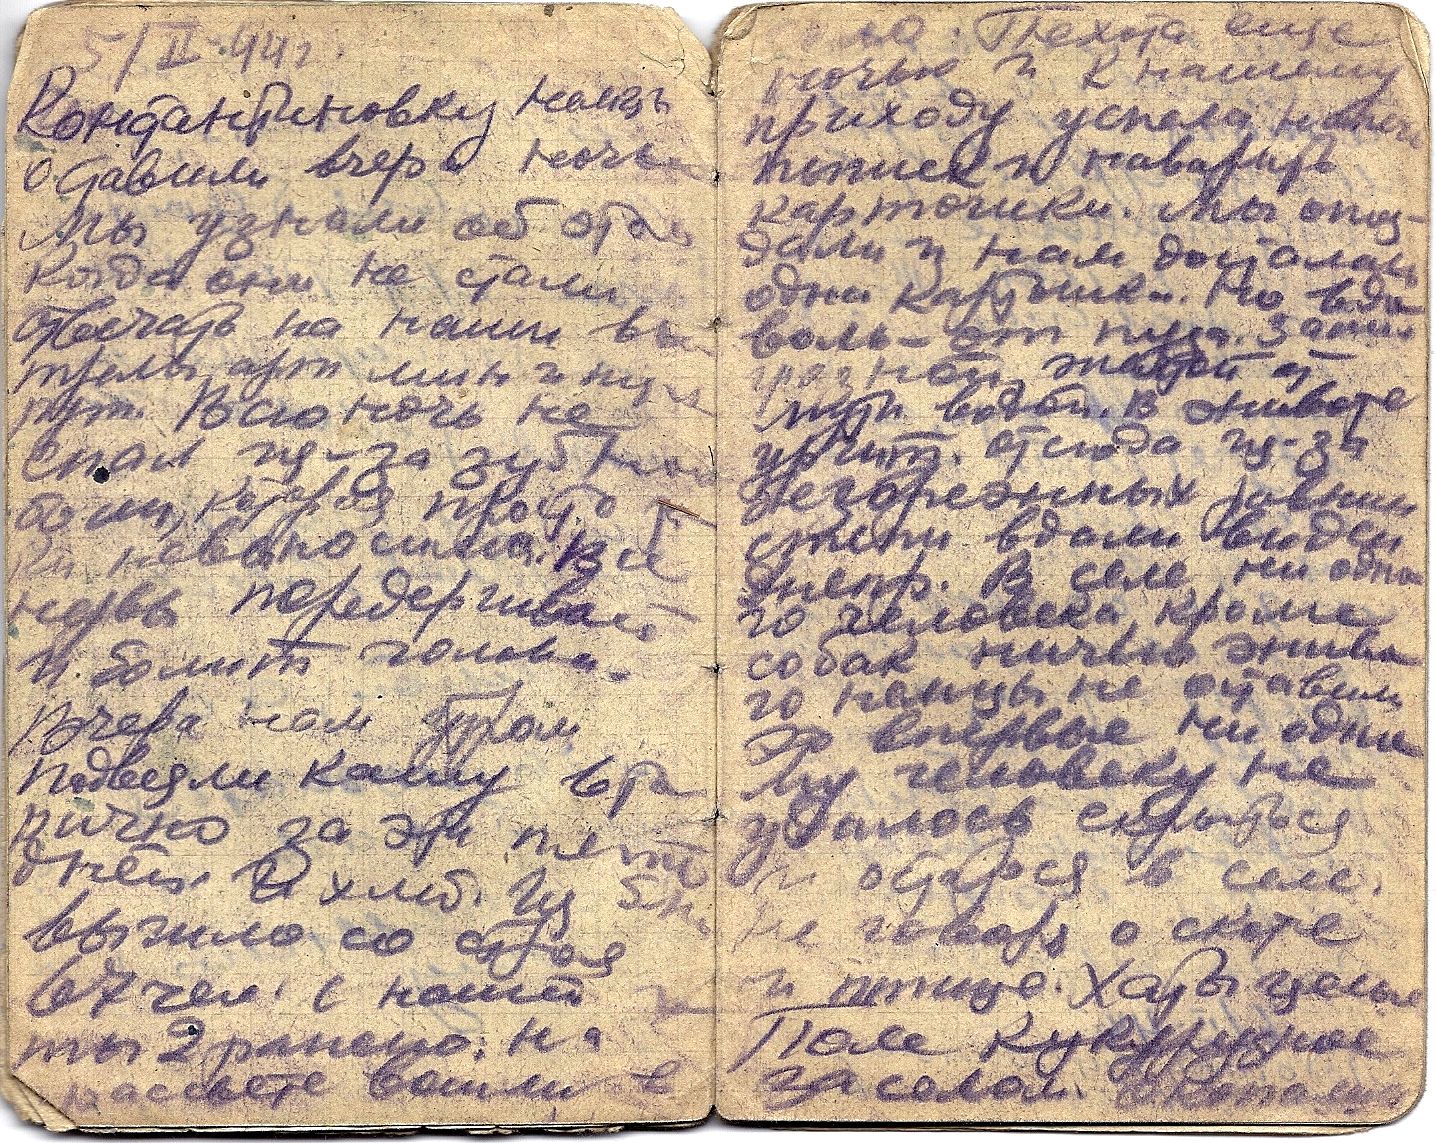 5/II-44 г.
Константиновку немцы
оставили вчера ночью
Мы узнали об этом
когда они не стали
отвечать на наши вы-
стрелы арт мин и
Всю ночь не
спал из-за зубной
боли, которая просто
невыносима. Все
нервы передергивает
и болит голова.
Вчера нам утром
подвезли кашу
за эти пять
дней И хлеб. Из
выбыло со строя
67 чел. С нашей
2 ранено. На
рассвете вошли в
село. Пехота еще
ночью и к нашему
приходу успела напечь
пышек и наварить
картошки. Мы опоз-
дали и нам достались
одни картошки. Но вдо-
воль - от пуза. Запили
грязной желтой
водой. В животе
урчит. Отсюда из-за
равнин
степи вдали виден
Днепр. В селе ни одно-
го человека, кроме
собак ничего живо-
го немцы не оставили
Это впервые ни одно-
му человеку не
удалось скрыться
и остаться в селе.
Не говоря о скоте
и птице. Хаты целые
Поле кукурузное
за селом.